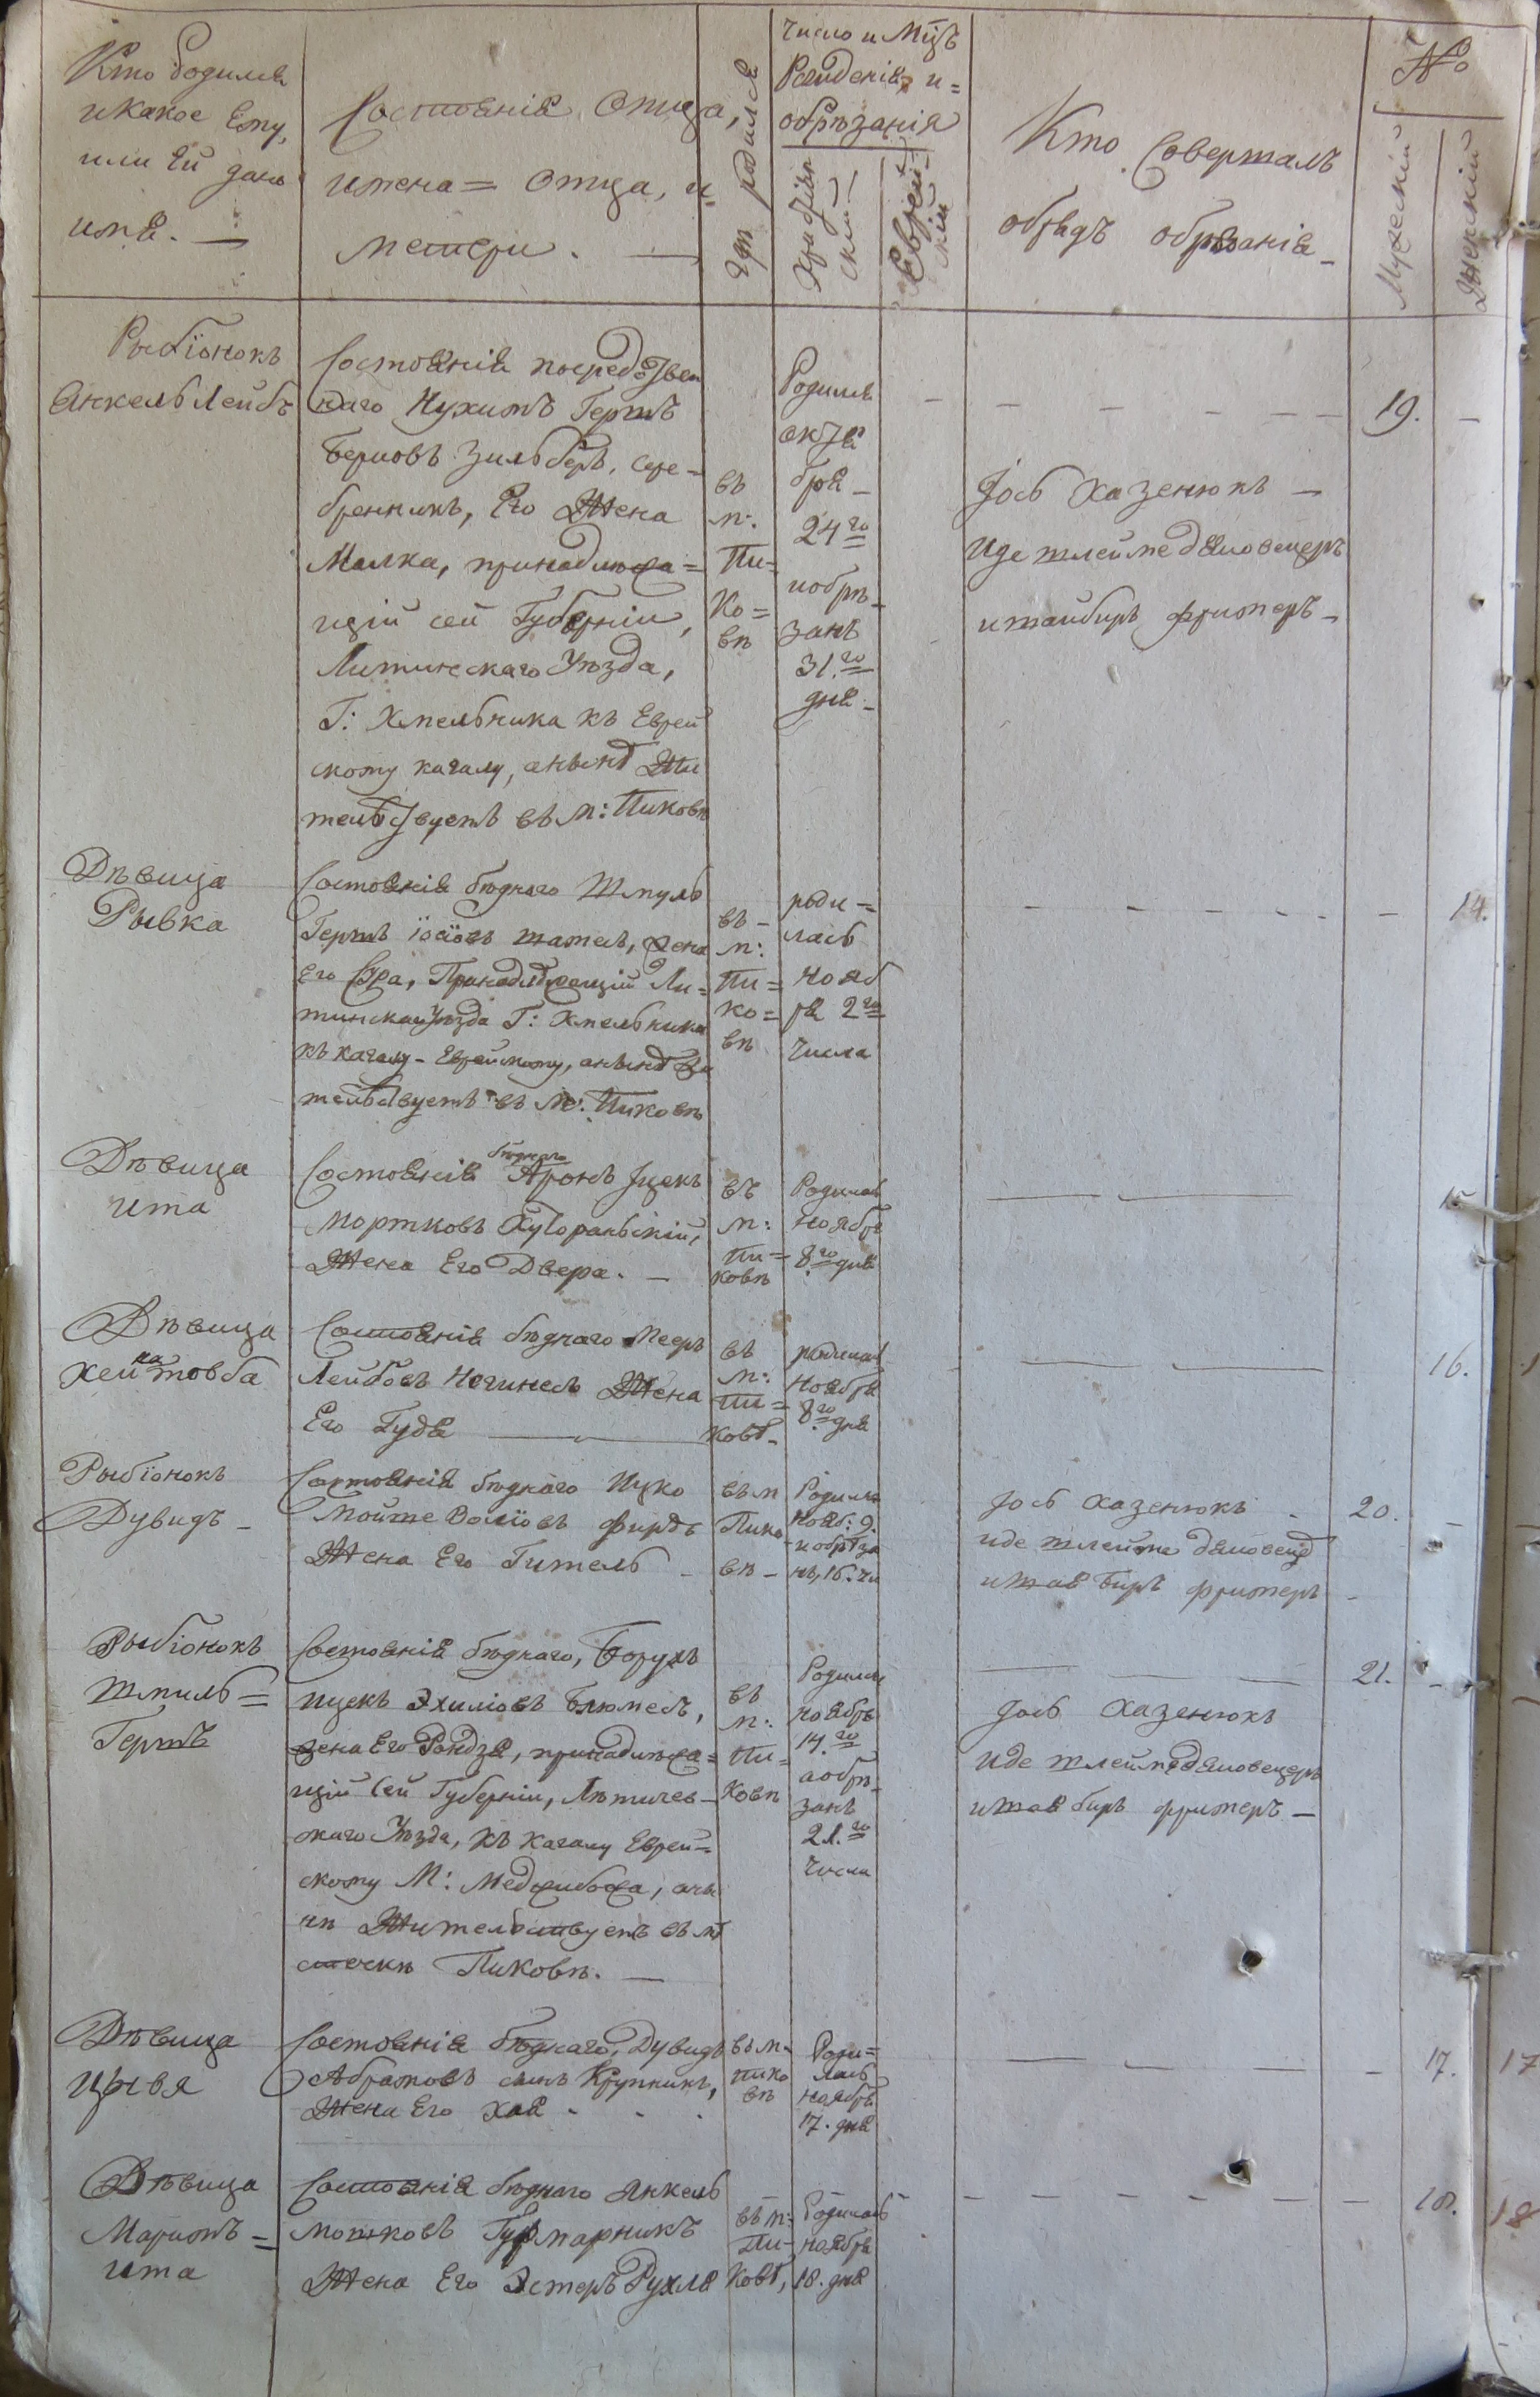 Кто родился
и какое Ему,
или Ей дано
имя. —
Состоянія Отца,
имена = Отца, и
матери. —
где родился
Число и Мцъ
Рожденія, и =
обрѣзанія
Христіян
скій
Еврей
скій
Кто Совершалъ
обрядъ обрезанія —
№
Мужескій
Женскій
Рыбіонокъ
Янкель Лейбъ
Состоянія посредствен
наго Нухимъ Гершъ
Берковъ Зильберъ, сере =
бренникъ, Его Жена
Малка, принадлежа =
щій сей Губерніи,
Литинскаго Уѣзда,
Г: Хмельника къ Еврей
скому кагалу, а нынѣ Жи
тельствуетъ въ м: Пиковѣ
въ
м:
Пи =
ко =
вѣ
Родился
октя
бря —
24го
и обрѣ
занъ
31.го
дня —
Іось Хазенюкъ —
Иде
и фримеръ —
19.
Дѣвица
Рывка
Состоянія бѣднаго Шмуль
Гершъ жена
Его Сура, Принадлежащій Ли =
тинскаго Уѣзда Г: Хмельника
къ кагалу — Еврейскому, а нынѣ Жи
тельствуетъ въ м: Пиковѣ
въ —
м:
Пи =
ко =
вѣ
роди =
лась
нояб
ря 2го
числа
14.
Дѣвица
Ита
бѣднаго
Состоянія Аронъ Іцекъ
Мортковъ
Жена Его Двера. —
въ
м:
Пи =
ковѣ
Родилась
ноября
8.го дня
15
Дѣвица
на
Хей товба
Состоянія бѣднаго Мееръ
Лейбовъ Жена
Его Гудя
въ
м:
Пи =
ковѣ —
родилась
Ноября
8.го дня
16.
Рыбіонокъ
Дувидъ —
Состоянія бѣднаго Ицко
Мойше фирдъ
Жена Его Гитель —
въ м
Пико
вѣ —
Родился
Нояб: 9.
и обрѣза
нъ, 16. чи
Іось Хазенюкъ
иде
и фримеръ —
20.
Рыбіонокъ
Шмиль =
Гершъ
Состоянія бѣднаго, Борухъ
ицекъ Эхиліовъ Блюмесъ,
жена Его принадлежа =
щій сей Губерніи, Лѣтичев —
скаго Уѣзда, къ кагалу Еврей =
скому М: Меджибожа, а ны
нѣ Жительствуетъ въ мѣ
стечкѣ Пиковѣ. —
въ
м:
Пи =
ковѣ
Родился
ноября
14.го
а обрѣ
занъ
21.го
числа
Іось Хазенюкъ
иде
и фримеръ —
21.
Дѣвица
Цывя
Состоянія бѣднаго, Дувидъ
Абрамовъ сынъ Крупникъ,
Жена Его Хая
въ м:
Пико
вѣ
Роди =
лась
ноября
17. дня
17.
17
Дѣвица
Маримъ =
Ита
Состоянія бѣднаго Янкель
мошковъ
Жена Его Эстеръ Рухля
въ м:
Пи —
ковѣ,
Родилась
ноября
18. дня
18.
18